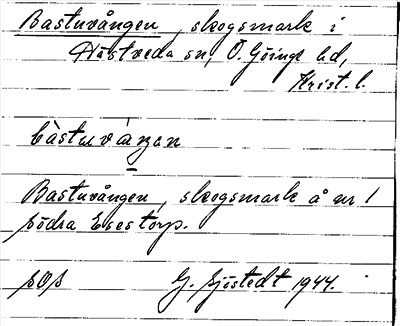 Bastuvången, skogsmark i
Hästveda sn, Ö. Göinge hd,
Krist. l.
bàstuvàŋən
Bastuvången, skogsmark å nr 1
södra Esestorp.
G. Sjöstedt 1944.